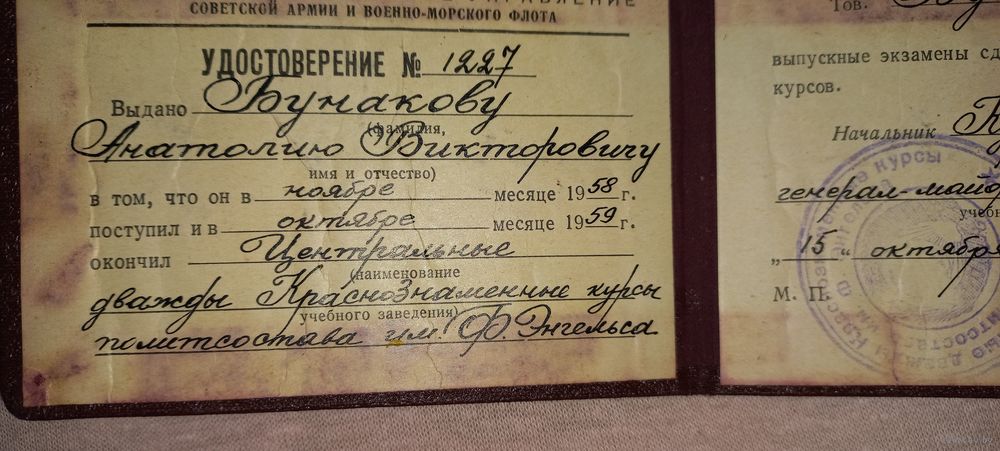 СОВЕТСКОЙ АРМИИ И ВОЕННО-МОРСКОГО ФЛОТА
УДОСТОВЕРЕНИЕ № 1227
Выдано Бунакову
(фамилия,
Анатолию Викторовичу
имя и отчество)
в том, что он в ноябре месяце 1958 г.
поступил и в октябре месяце 1959 г.
окончил Центральные
(наименование
дважды Краснознаменные курсы
учебного заведения)
политсостава им. Ф. Энгельса
Тов.
выпускные экзамены сд
курсов.
Начальник
генерал-майо
учебн
„15“ октября
М. П.